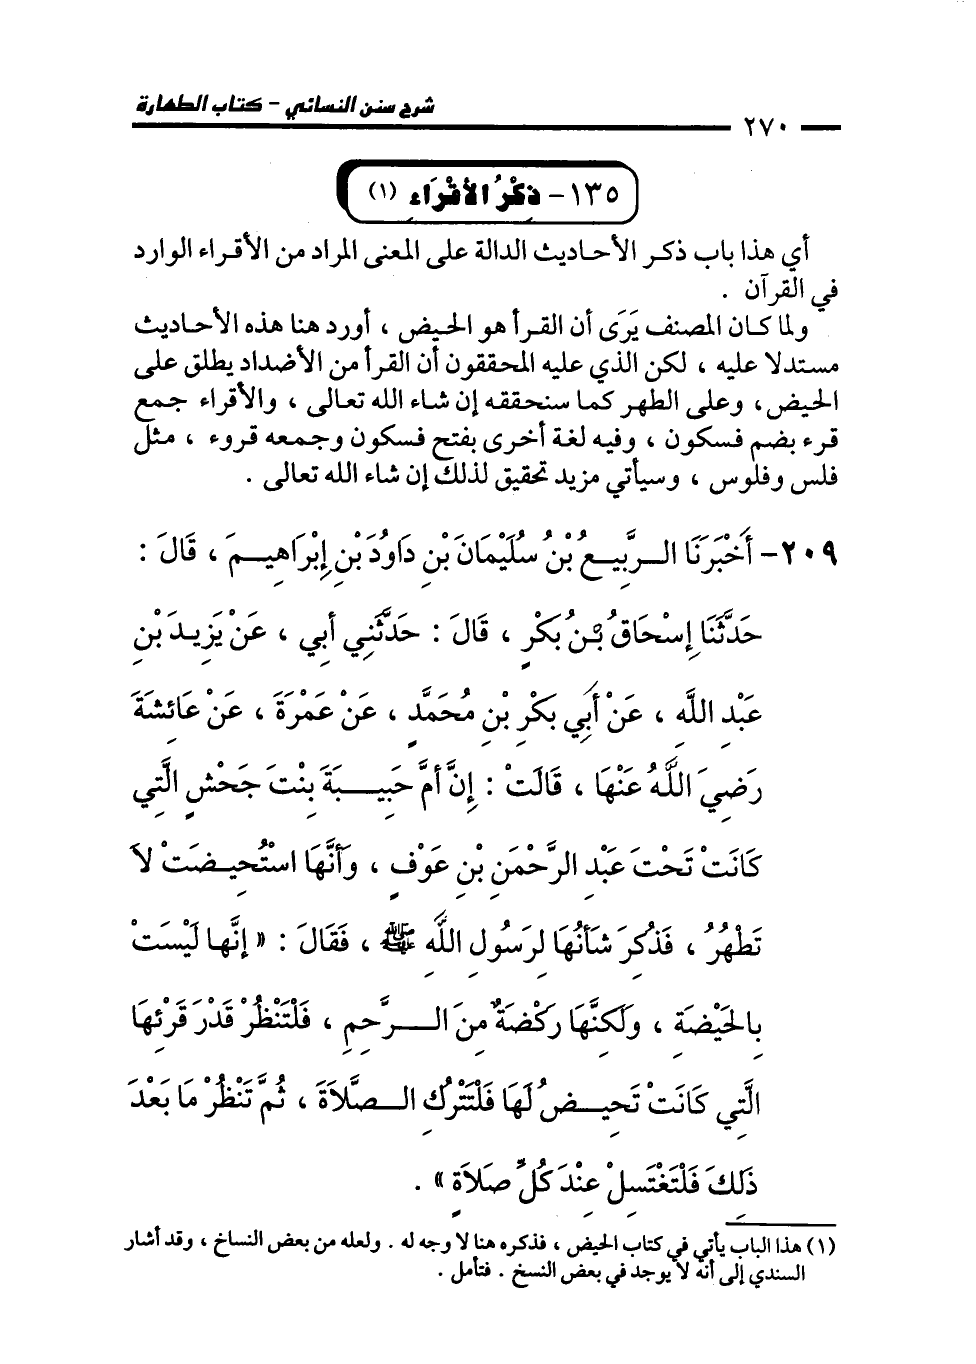 شرح سنن النسائي - كتاب الطهارة
٢٧٠
١٣٥- ذِكْرُ الأَقْرَاءِ (١)
أي هذا باب ذكر الأحاديث الدالة على المعنى المراد من الأقراء الوارد
في القرآن .
ولما كان المصنف يَرَى أن القرأ هو الحيض ، أورد هنا هذه الأحاديث
مستدلا عليه ، لكن الذي عليه المحققون أن القرأ من الأضداد يطلق على
الحيض، وعلى الطهر كما سنحققه إن شاء الله تعالى ، والأقراء جمع
قرء بضم فسكون ، وفيه لغة أخرى بفتح فسكون وجمعه قروء ، مثل
فلس وفلوس ، وسيأتي مزيد تحقيق لذلك إن شاء الله تعالى .
٢٠٩- أَخْبَرَنَا الرَّبِيعُ بْنُ سُلَيْمَانَ بْنِ دَاوُدَ بْنِ إِبْرَاهِيمَ ، قَالَ :
حَدَّثَنَا إِسْحَاقُ بْنُ بَكْرٍ ، قَالَ : حَدَّثَنِي أَبِي ، عَنْ يَزِيدَ بْنِ
عَبْدِ اللَّهِ ، عَنْ أَبِي بَكْرِ بْنِ مُحَمَّدٍ ، عَنْ عَمْرَةَ ، عَنْ عَائِشَةَ
رَضِيَ اللَّهُ عَنْهَا ، قَالَتْ : إِنَّ أُمَّ حَبِيبَةَ بِنْتَ جَحْشٍ الَّتِي
كَانَتْ تَحْتَ عَبْدِ الرَّحْمَنِ بْنِ عَوْفٍ ، وَأَنَّهَا اسْتُحِيضَتْ لاَ
تَطْهُرُ ، فَذُكِرَ شَأْنُهَا لِرَسُولِ اللَّهِ ﷺ ، فَقَالَ : « إِنَّهَا لَيْسَتْ
بِالْحَيْضَةِ ، وَلَكِنَّهَا رَكْضَةٌ مِنَ الرَّحِمِ ، فَلْتَنْظُرْ قَدْرَ قَرْئِهَا
الَّتِي كَانَتْ تَحِيضُ لَهَا فَلْتَتْرُكِ الصَّلاَةَ ، ثُمَّ تَنْظُرْ مَا بَعْدَ
ذَلِكَ فَلْتَغْتَسِلْ عِنْدَ كُلِّ صَلاَةٍ » .
(١) هذا الباب يأتي في كتاب الحيض ، فذكره هنا لا وجه له . ولعله من بعض النساخ ، وقد أشار
السندي إلى أنه لا يوجد في بعض النسخ . فتأمل .